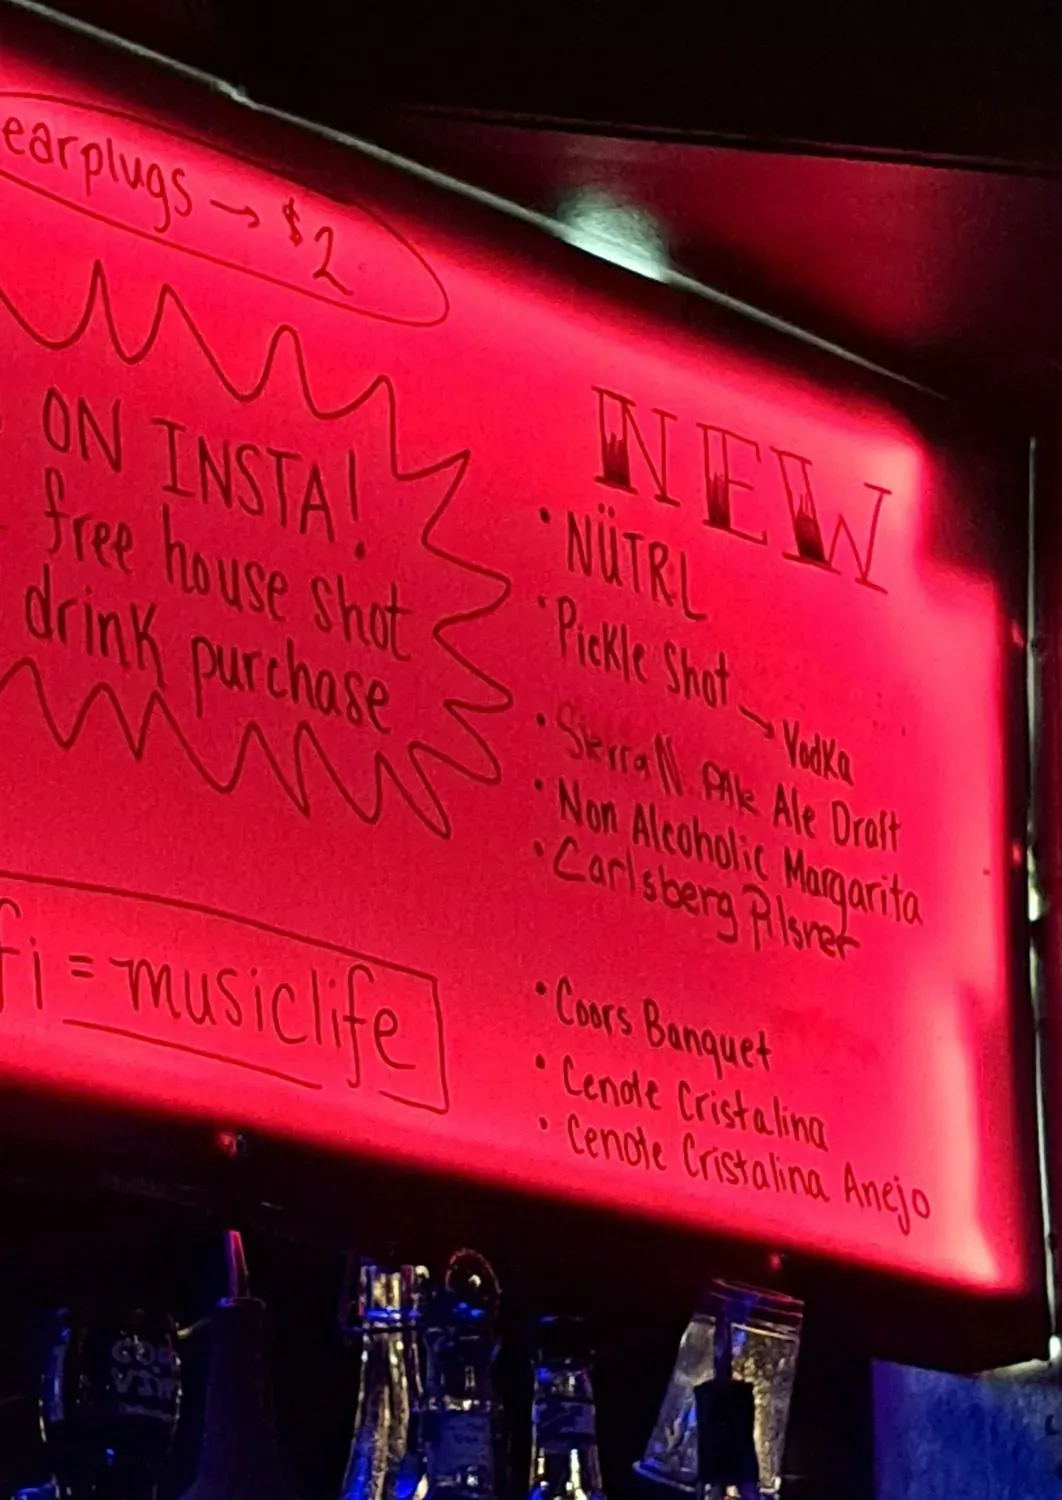 earplugs → $2
ON INSTA!
free house shot
drink purchase
fi = musiclife
NEW
• NÜTRL
• Pickle Shot → Vodka
• Sierra N. Pale Ale Draft
• Non Alcoholic Margarita
• Carlsberg Pilsner
• Coors Banquet
• Cenote Cristalina
• Cenote Cristalina Anejo